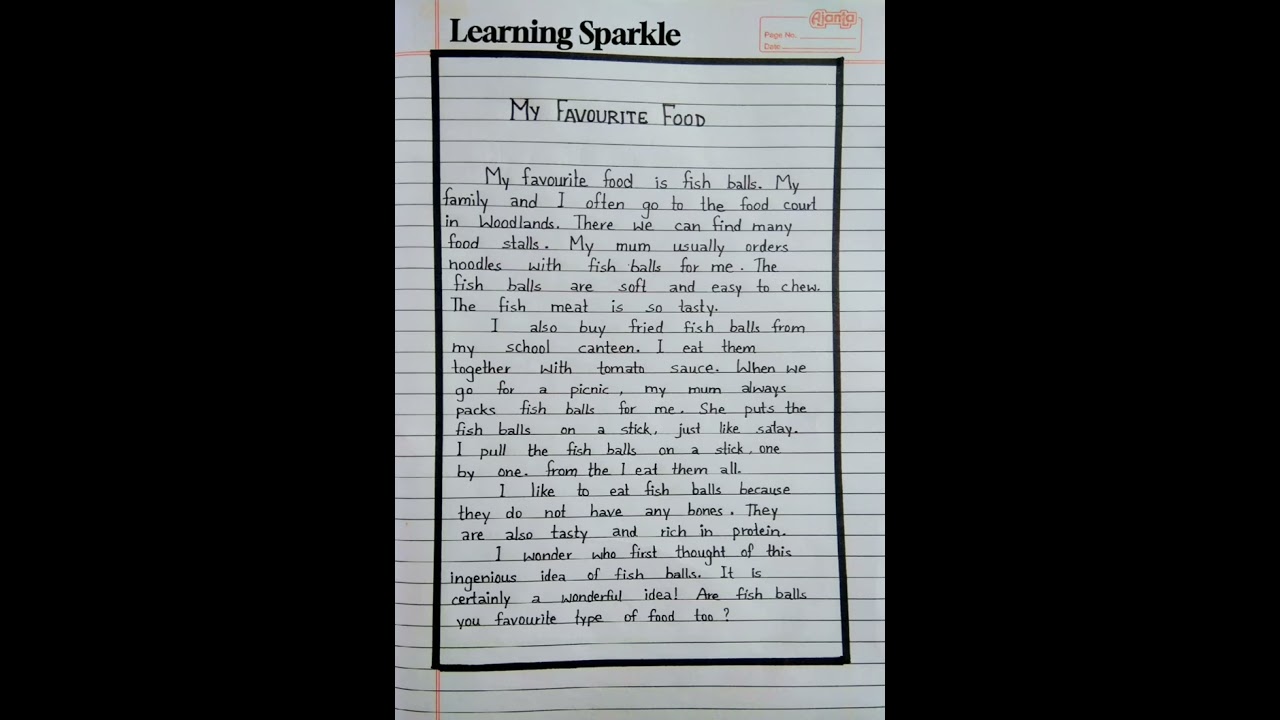 Learning Sparkle
Ajanta
Page No.
Date
My Favourite Food
My favourite food is fish balls. My
family and I often go to the food court
in Woodlands. There we can find many
food stalls. My mum usually orders
noodles with fish balls for me. The
fish balls are soft and easy to chew.
The fish meat is so tasty.
I also buy fried fish balls from
my school canteen. I eat them
together with tomato sauce. When we
go for a picnic, my mum always
packs fish balls for me. She puts the
fish balls on a stick, just like satay.
I pull the fish balls on a stick, one
by one. from the I eat them all.
I like to eat fish balls because
they do not have any bones. They
are also tasty and rich in protein.
I wonder who first thought of this
ingenious idea of fish balls. It is
certainly a wonderful idea! Are fish balls
you favourite type of food too?